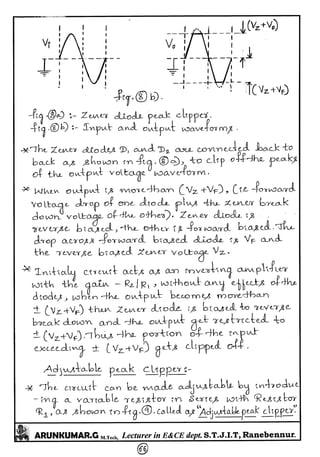 Vi
Vo
(Vz+VF)
(Vz+VF)
fig. (8) b).
fig (8)a) :- Zener diode peak clipper.
fig (8)b) :- Input and output waveforms.
* The Zener diodes D1 and D2 are connected back to
back as shown in fig.(8)a), to clip off the peaks
of the output voltage waveform.
* When output is more than (Vz +VF), (ie forward
voltage drop of one diode plus the zener break
down voltage of the other). Zener diode is
reverse biased, the other is forward biased. The
drop across forward biased diode is VF and
the reverse biased zener voltage Vz.
* Initialy circuit acts as an inverting amplifier
with the gain - Rf/R1, without any effects of the
diodes, when the output becomes more than
± (Vz+VF) then Zener diode is biased to reverse
breakdown and the output get restricted to
± (Vz+VF). Thus the portion of the input
exceeding ± (Vz+VF) gets clipped off.
Adjustable peak clipper:-
* The circuit can be made adjustable by introduc
-ing a variable resistor in series with Resistor
R1, as shown in fig.(9). called as "Adjustable peak clipper".
ARUNKUMAR.G M.Tech, Lecturer in E&CE dept. S.T.J.I.T, Ranebennur.